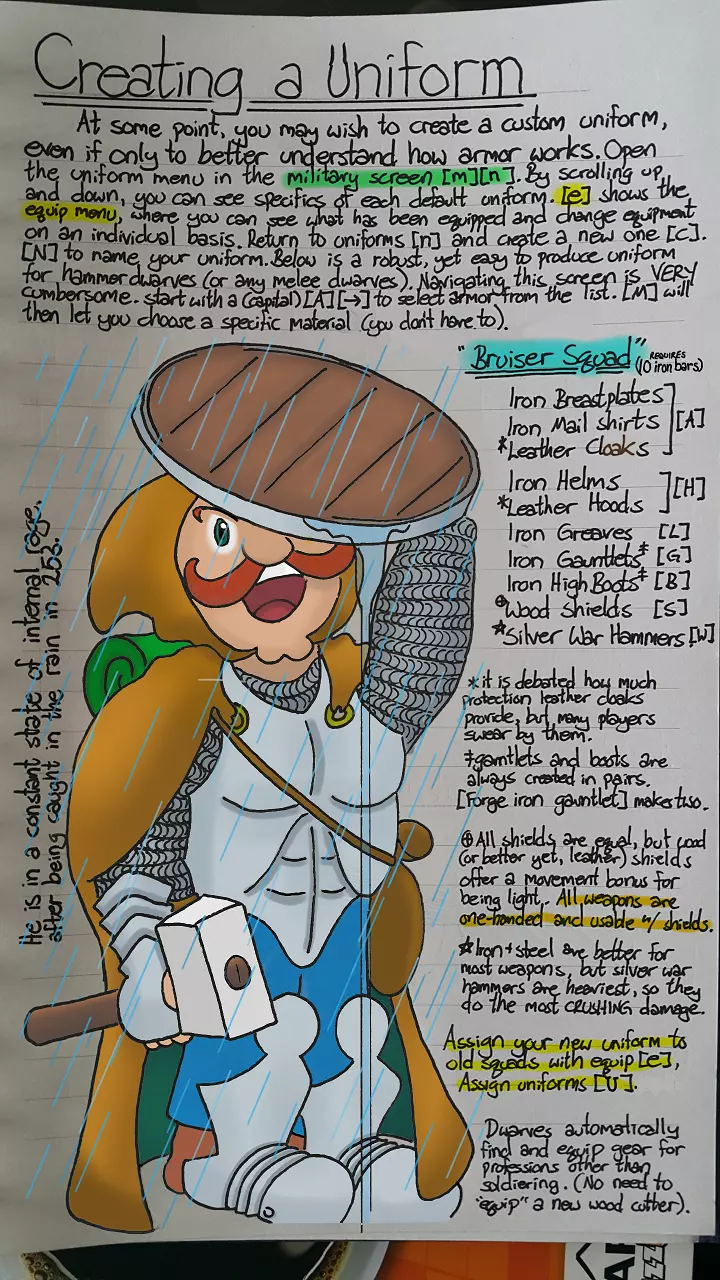 Creating a Uniform
At some point, you may wish to create a custom uniform,
even if only to better understand how armor works. Open
the uniform menu in the military screen [m][n]. By scrolling up
and down, you can see specifics of each default uniform. [e] shows the
equip menu, where you can see what has been equipped and change equipment
on an individual basis. Return to uniforms [n] and create a new one [c].
[N] to name your uniform. Below is a robust, yet easy to produce uniform
for hammerdwarves (or any melee dwarves). Navigating this screen is VERY
cumbersome. start with a (capital) [A] [→] to select armor from the list. [M] will
then let you choose a specific material (you don't have to).
"Bruiser Squad" (REQUIRES
10 iron bars)
Iron Breastplates
Iron Mail shirts [A]
*Leather Cloaks
Iron Helms
*Leather Hoods [H]
Iron Greaves [L]
Iron Gauntlets‡ [G]
Iron High Boots‡ [B]
⊕Wood Shields [S]
☆Silver War Hammers [W]
*it is debated how much
protection leather cloaks
provide, but many players
swear by them.
‡gauntlets and boots are
always created in pairs.
[Forge iron gauntlet] makes two.
⊕All shields are equal, but wood
(or better yet, leather) shields
offer a movement bonus for
being light. All weapons are
one-handed and usable w/ shields.
☆Iron + steel are better for
most weapons, but silver war
hammers are heaviest, so they
do the most CRUSHING damage.
Assign your new uniform to
old squads with equip [e],
Assign uniforms [U].
Dwarves automatically
find and equip gear for
professions other than
soldiering. (No need to
"equip" a new wood cutter).
He is in a constant state of internal rage.
after being caught in the rain in 253.